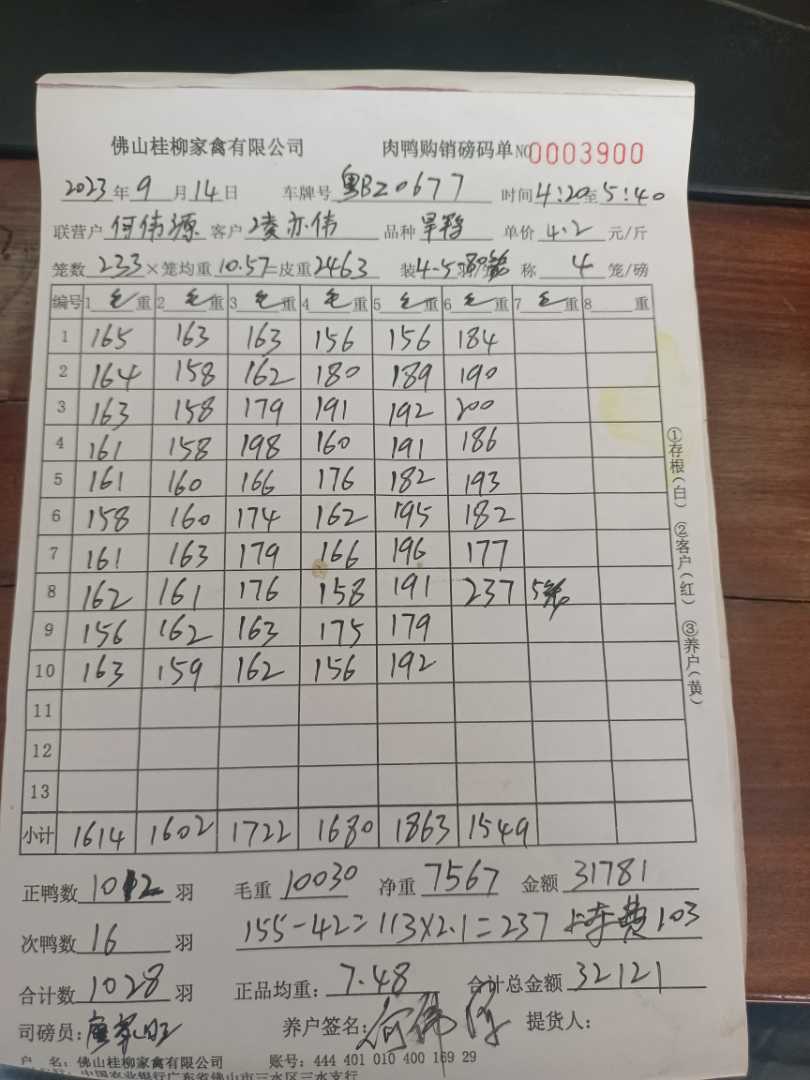 佛山桂柳家禽有限公司 肉鸭购销磅码单 NO 0003900
2023年9月14日 车牌号 粤BZ0677 时间4:20至5:40
联营户 何伟源 客户 凌亦伟 品种 旱鸭 单价 4.2 元/斤
笼数 233×笼均重 10.57=皮重 2463 装4-5 称 4 笼/磅
编号 1 毛重 2 毛重 3 毛重 4 毛重 5 毛重 6 毛重 7 毛重 8 重
1 165 163 163 156 156 184
2 164 158 162 180 189 190
3 163 158 179 191 192 200
4 161 158 198 160 191 186
5 161 160 166 176 182 193
6 158 160 174 162 195 182
7 161 163 179 166 196 177
8 162 161 176 158 191 237 5笼
9 156 162 163 175 179
10 163 159 162 156 192
11
12
13
小计 1614 1602 1722 1680 1863 1549
正鸭数 1012 羽 毛重 10030 净重 7567 金额 31781
次鸭数 16 羽 155-42=113×2.1=237 上车费103
合计数 1028 羽 正品均重: 7.48 合计总金额 32121
司磅员: 养户签名: 何伟源 提货人:
户 名: 佛山桂柳家禽有限公司 账号: 444 401 010 400 169 29
中国农业银行广东省佛山市三水区三水支行
①存根(白) ②客户(红) ③养户(黄)